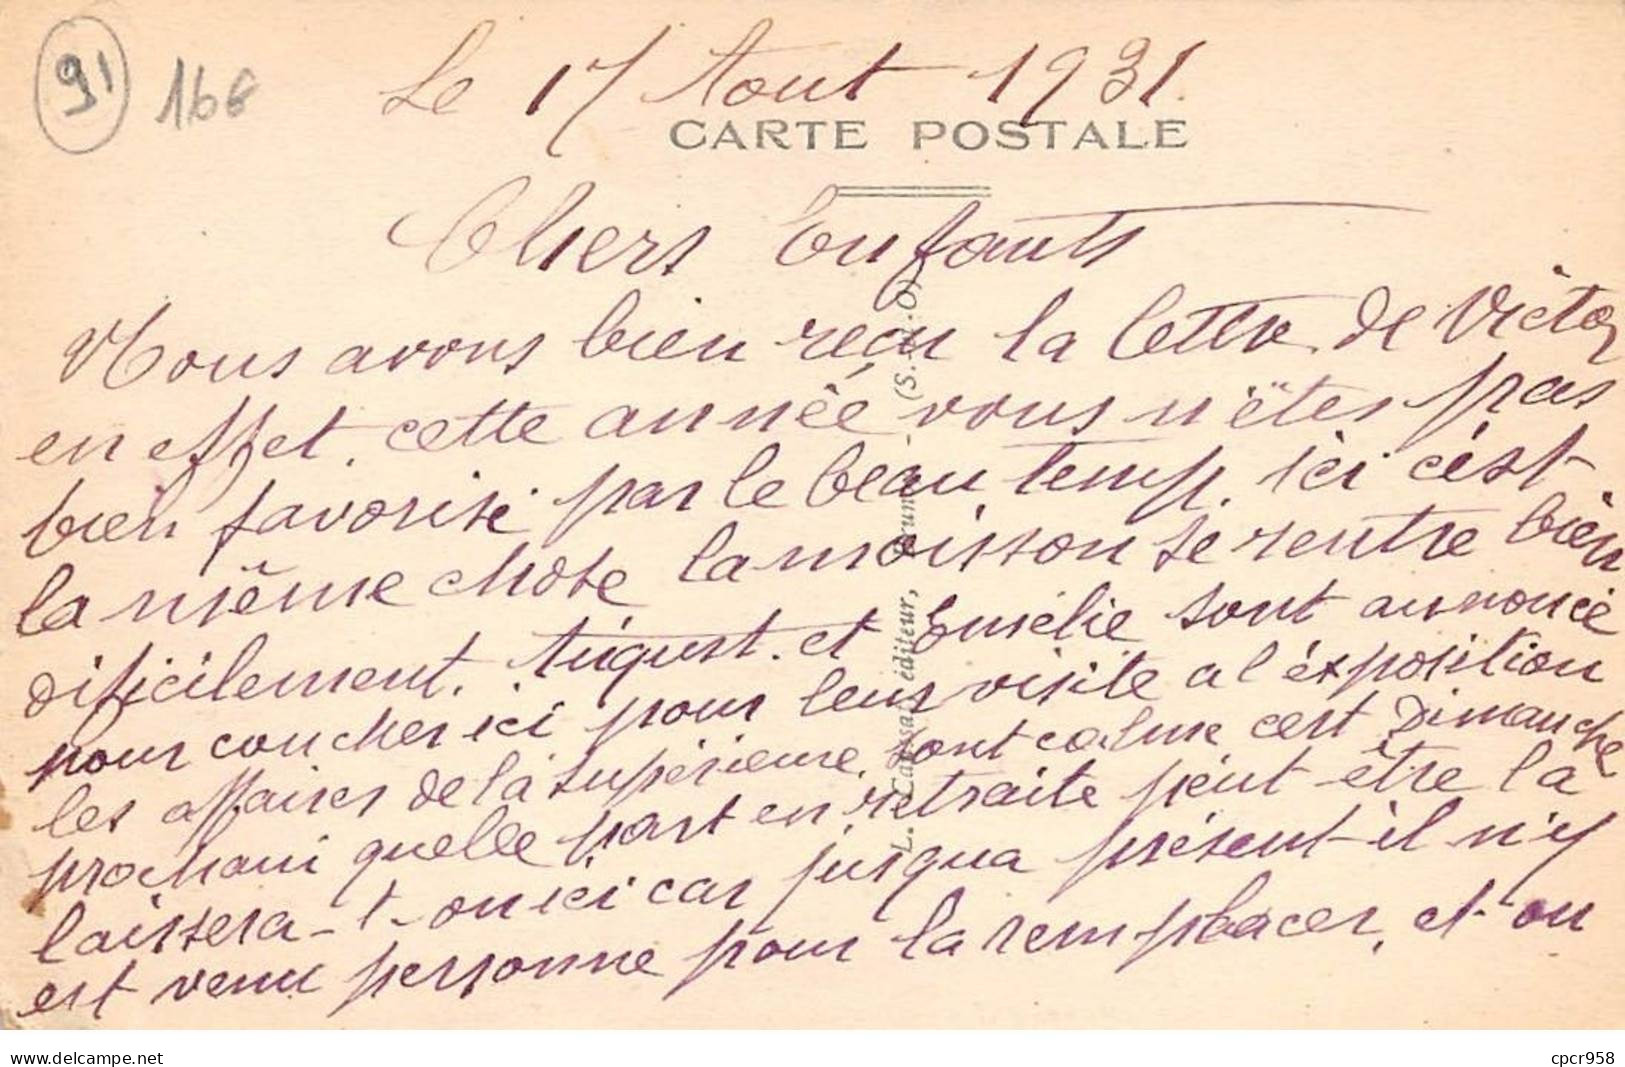 91
16€
Le 17 Aout 1931.
CARTE POSTALE
Chers Enfants
Nous avons bien reçu la lettre de Victor
en effet cette année vous n'êtes pas
bien favorisé par le beau temp. ici c'est
la même chose la moisson se rentre bien
dificilement. August. et Emélie sont annoncé
pour coucher ici pour leur visite a l'éxposition
les affaires de la supérieure sont calme cest Dimanche
prochain quelle part en retraite peut être la
laissera-t-on ici car jusqua présent il n'y
est venu personne pour la remplacer, et on
L. éditeur, (S.-et-O)
www.delcampe.net
cpcr958